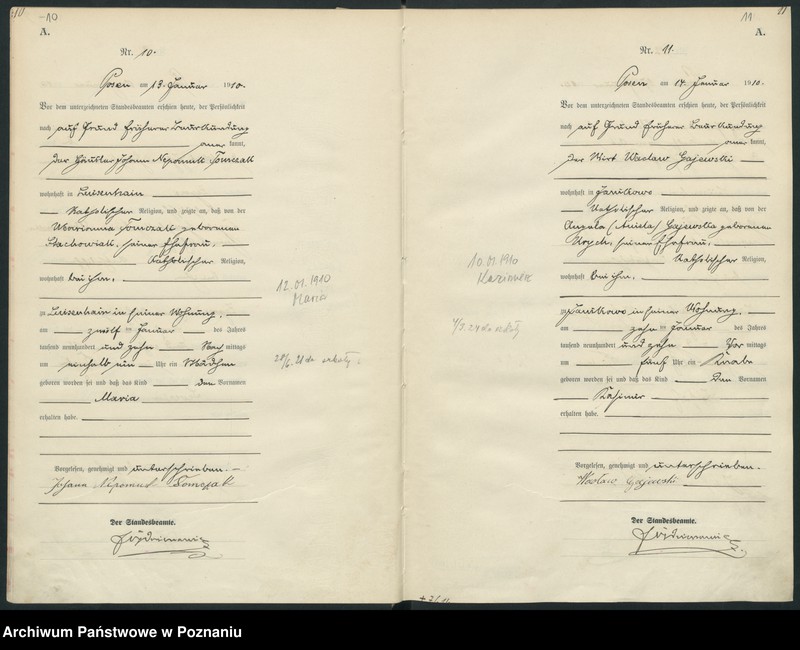 10
A.
Nr. 10.
Posen am 13. Januar 1910.
Vor dem unterzeichneten Standesbeamten erschien heute, der Persönlichkeit
nach auf Grund früherer Beurkundung
kannt,
der Häusler Johann Nepomuk Tomczak
wohnhaft in Luisenhain
Katholischer Religion, und zeigte an, daß von der
Marianna Tomczak geborenen
Stachowiak, seiner Ehefrau,
Katholischer Religion,
wohnhaft bei ihm,
zu Luisenhain in seiner Wohnung,
am zwölf ten Januar des Jahres
tausend neunhundert und zehn Nachmittags
um einhalb ein Uhr ein Mädchen
geboren worden sei und daß das Kind den Vornamen
Maria
erhalten habe.
Vorgelesen, genehmigt und unterschrieben.
Johann Nepomuk Tomczak
Der Standesbeamte.
12.01.1910
Maria
do szkoły
11
A.
Nr. 11.
Posen am 14. Januar 1910.
Vor dem unterzeichneten Standesbeamten erschien heute, der Persönlichkeit
nach auf Grund früherer Beurkundung
kannt,
der Wirt Waclaw Gajewski
wohnhaft in Janikowo
Katholischer Religion, und zeigte an, daß von der
Angela (Aniela) Gajewska geborenen
seiner Ehefrau,
Katholischer Religion,
wohnhaft bei ihm,
zu Janikowo in seiner Wohnung,
am zehn ten Januar des Jahres
tausend neunhundert und zehn Vor mittags
um fünf Uhr ein Knabe
geboren worden sei und daß das Kind den Vornamen
Kasimir
erhalten habe.
Vorgelesen, genehmigt und unterschrieben.
Wacław Gajewski
Der Standesbeamte.
10.01.1910
Kazimierz
do szkoły
Archiwum Państwowe w Poznaniu